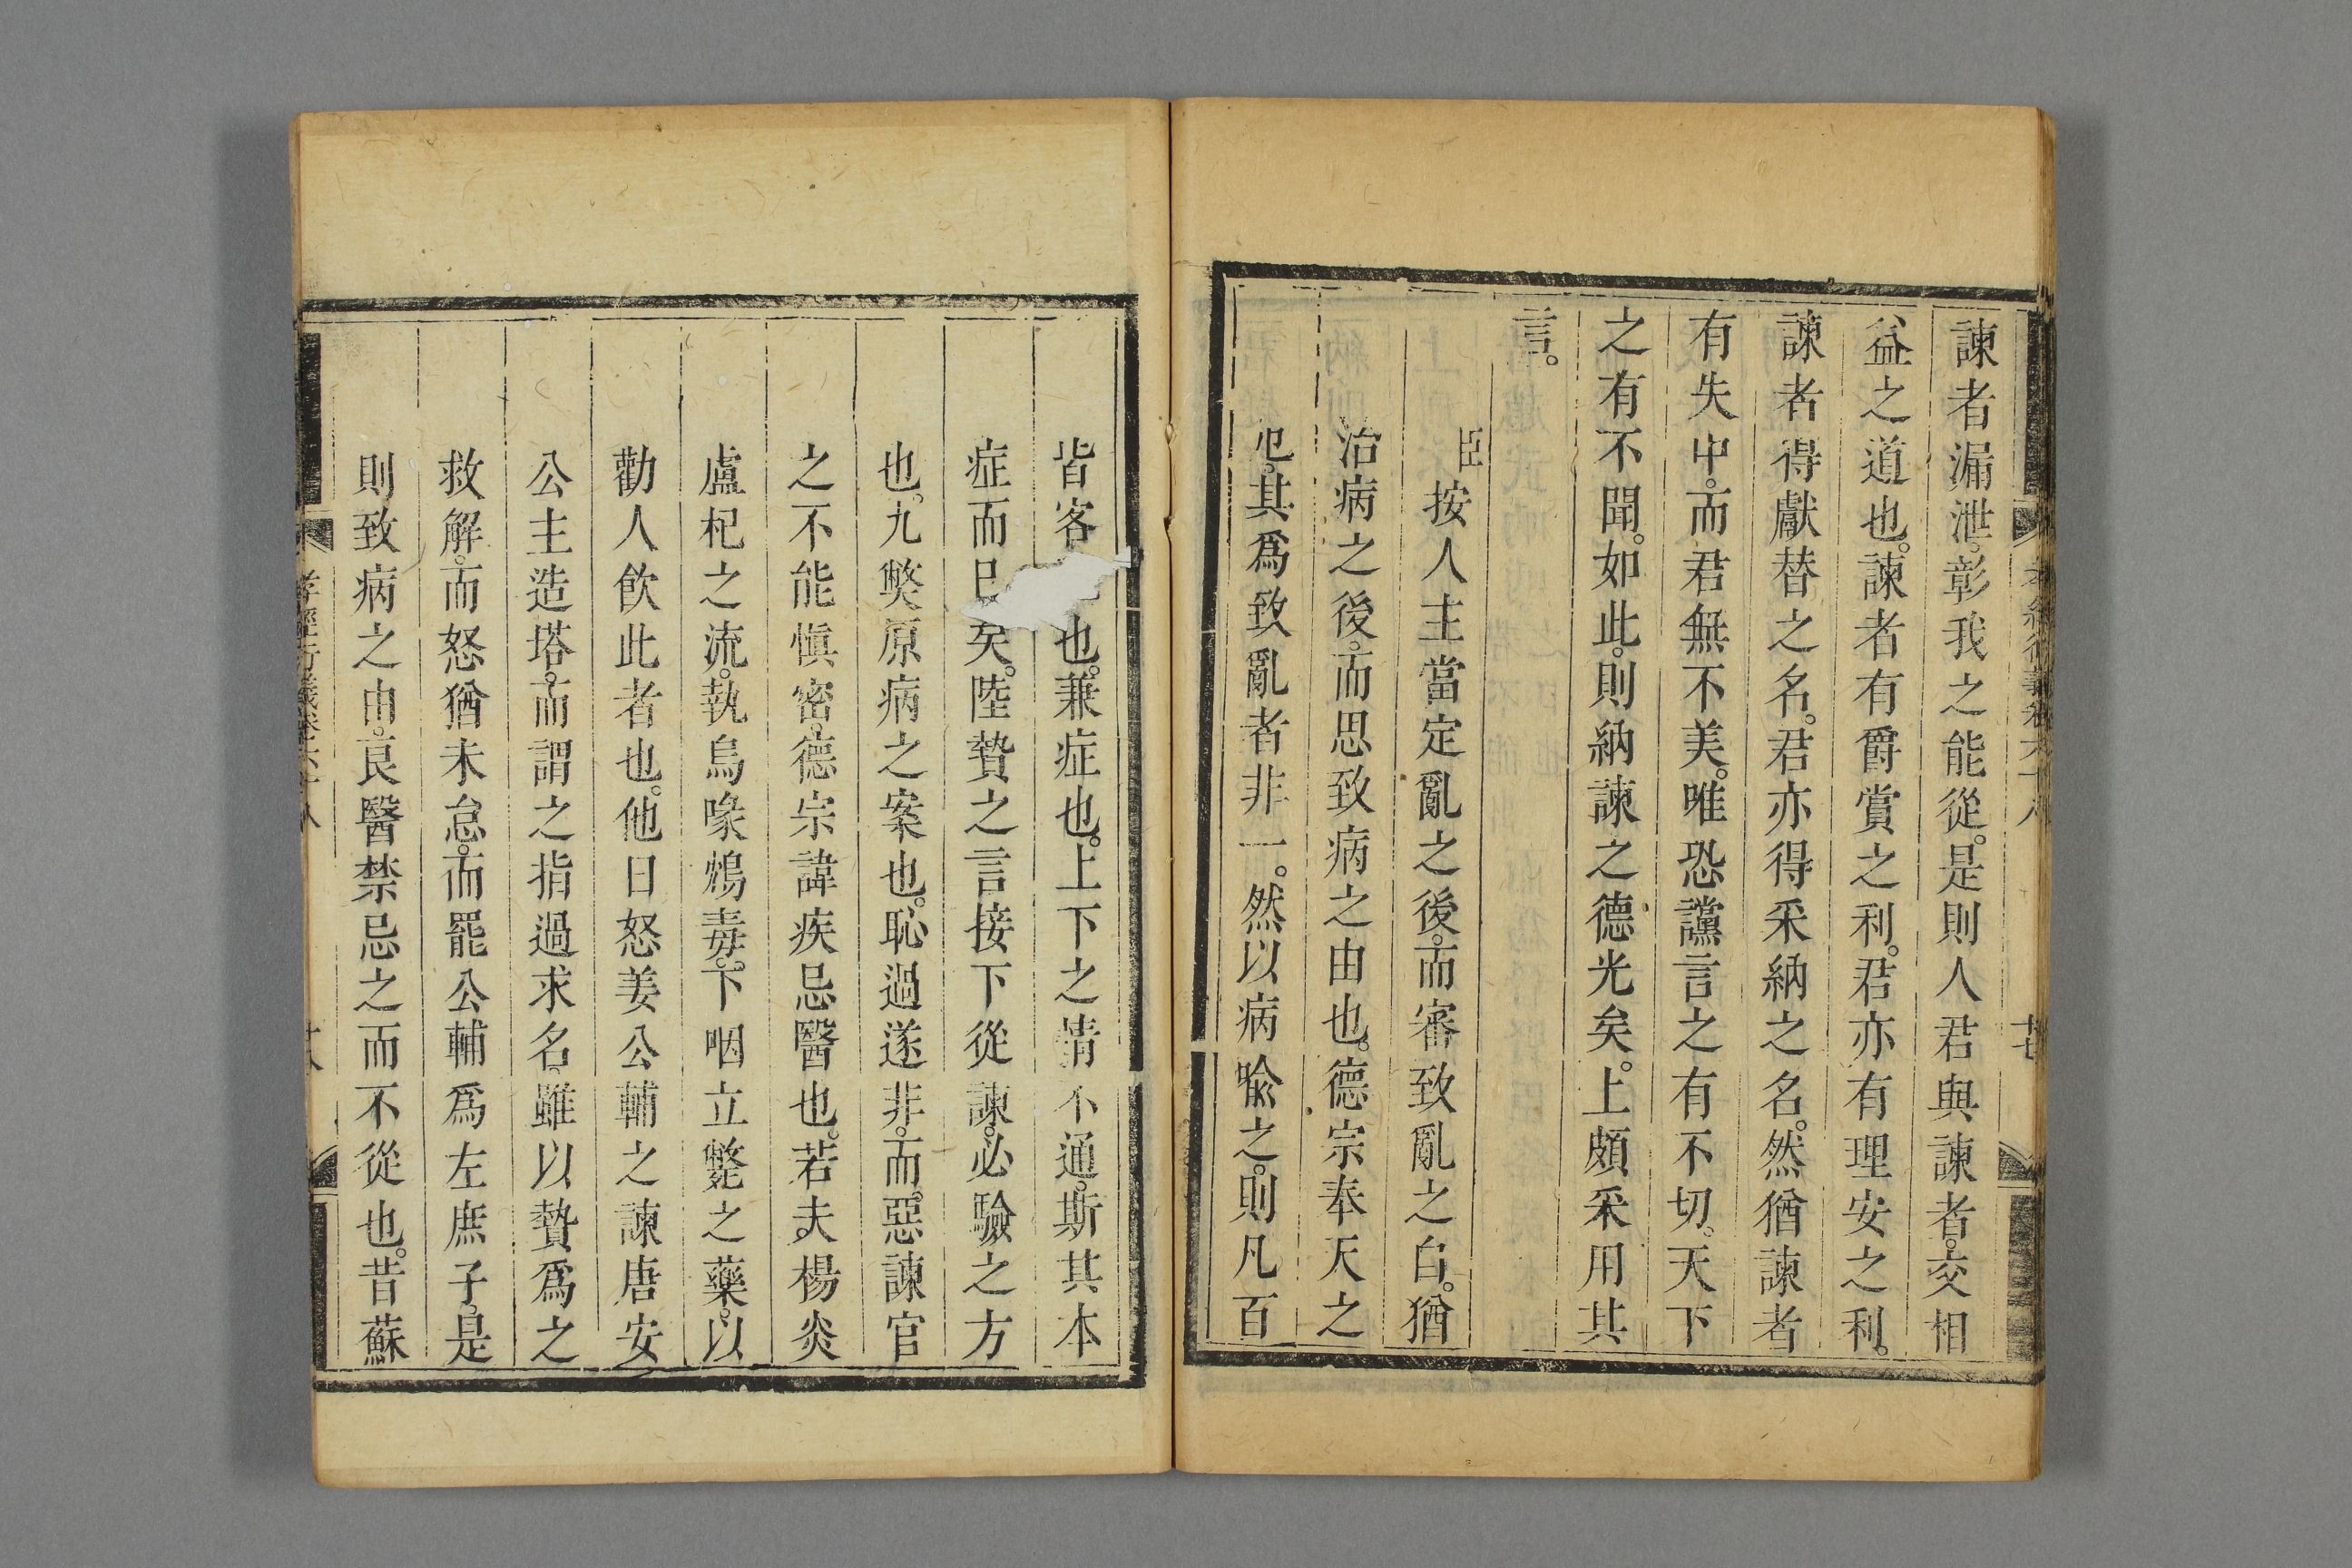 諫者漏泄。彰我之能從。是則人君與諫者。交相
益之道也。諫者有爵賞之利。君亦有理安之利。
諫者得獻替之名。君亦得采納之名。然猶諫者
有失中。而君無不美。唯恐讜言之有不切。天下
之有不聞。如此。則納諫之德光矣。上頗采用其
言。
臣按人主當定亂之後。而審致亂之白。猶
治病之後。而思致病之由也。德宗奉天之
厄。其爲致亂者非一。然以病喻之。則凡百
皆客也。兼症也。上下之情不通。斯其本
症而已矣。陸贄之言接下從諫。必驗之方
也。九獘原病之案也。恥過遂非。而惡諫官
之不能愼密。德宗諱疾忌醫也。若夫楊炎
盧杞之流。執烏喙鴆毒。下咽立斃之藥。以
勸人飮此者也。他日怒姜公輔之諫唐安
公主造塔。而謂之指過求名。雖以贄爲之
救解。而怒猶未怠。而罷公輔爲左庶子。是
則致病之由。良醫禁忌之而不從也。昔蘇
孝經衍義卷六十八